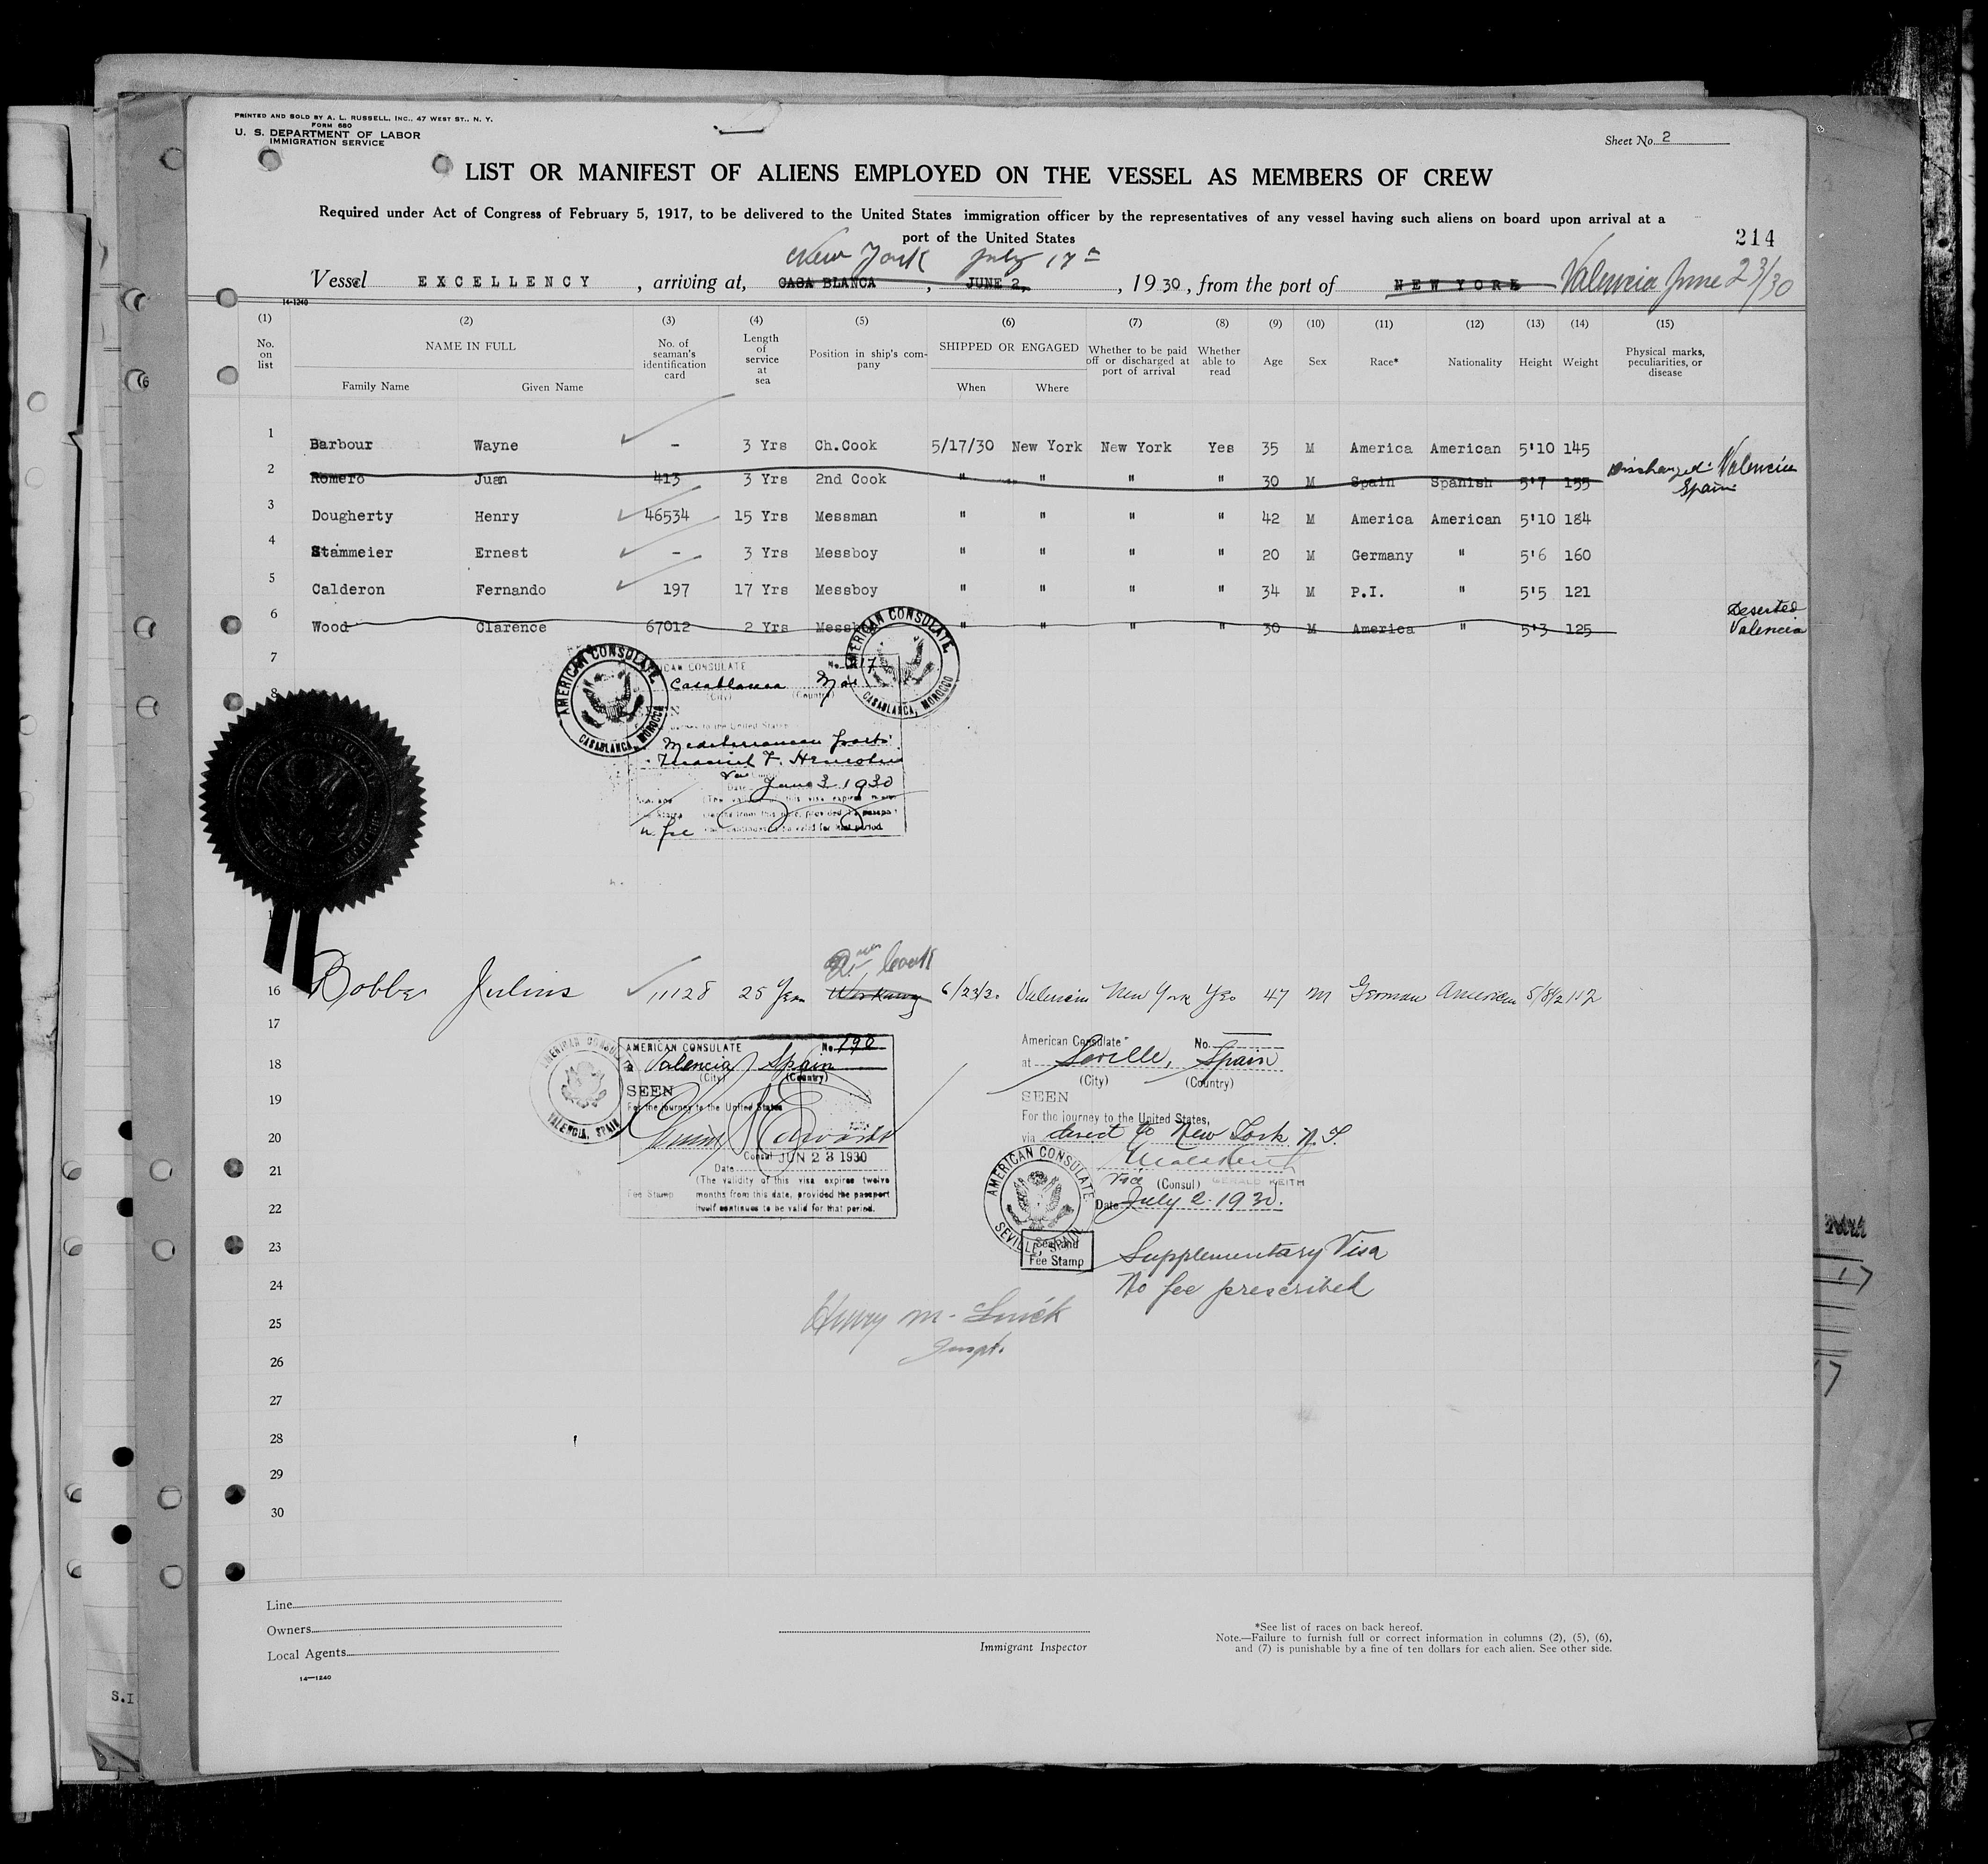 PRINTED AND SOLD BY A. L. RUSSELL, INC., 47 WEST ST., N. Y.
FORM 680
U. S. DEPARTMENT OF LABOR
IMMIGRATION SERVICE
Sheet No. 2
LIST OR MANIFEST OF ALIENS EMPLOYED ON THE VESSEL AS MEMBERS OF CREW
Required under Act of Congress of February 5, 1917, to be delivered to the United States immigration officer by the representatives of any vessel having such aliens on board upon arrival at a
port of the United States
214
New York July 17th
Vessel EXCELLENCY, arriving at, CASA BLANCA, JUNE 2, 1930, from the port of NEW YORK Valencia June 23/30
14-1240
(1) (2) (3) (4) (5) (6) (7) (8) (9) (10) (11) (12) (13) (14) (15)
No. on list
NAME IN FULL
Family Name Given Name
No. of seaman's identification card
Length of service at sea
Position in ship's company
SHIPPED OR ENGAGED
When Where
Whether to be paid off or discharged at port of arrival
Whether able to read
Age
Sex
Race*
Nationality
Height
Weight
Physical marks, peculiarities, or disease
1 Barbour Wayne - 3 Yrs Ch.Cook 5/17/30 New York New York Yes 35 M America American 5'10 145
2 Romero Juan 413 3 Yrs 2nd Cook " " " " 30 M Spain Spanish 5'7 155 Discharged Valencia Spain
3 Dougherty Henry 46534 15 Yrs Messman " " " " 42 M America American 5'10 184
4 Stammeier Ernest - 3 Yrs Messboy " " " " 20 M Germany " 5'6 160
5 Calderon Fernando 197 17 Yrs Messboy " " " " 34 M P.I. " 5'5 121
6 Wood Clarence 67012 2 Yrs Messb " " " " 30 M America " 5'3 125 Deserted Valencia
7
8
AMERICAN CONSULATE
CASABLANCA, MOROCCO
AMERICAN CONSULATE
CASABLANCA, MOROCCO
ICAN CONSULATE No. 17
Casablanca
(City) (Country)
to the United States
Mediterranean ports
June 3 1930
2nd Cook
16 Bobbe Julius 11128 25 Year Workaway 6/23/30 Valencia New York Yes 47 M German American 5/8½ 112
17
18
19
20
21
22
23
24
25
26
27
28
29
30
AMERICAN CONSULATE
VALENCIA, SPAIN
AMERICAN CONSULATE No. 190
Valencia Spain
(City) (Country)
SEEN
For the journey to the United States
Edwards
Consul JUN 23 1930
Date
(The validity of this visa expires twelve
Fee Stamp months from this date, provided the passport
itself continues to be valid for that period.
American Consulate No.
at Seville, Spain
(City) (Country)
SEEN
For the journey to the United States,
via direct to New York N.Y.
Vice (Consul) GERALD KEITH
Date July 2-1930.
AMERICAN CONSULATE
SEVILLE, SPAIN
Seal and
Fee Stamp
Supplementary Visa
No fee prescribed
Henry M.
Inspt.
Line
Owners
Local Agents
14—1240
Immigrant Inspector
*See list of races on back hereof.
Note.—Failure to furnish full or correct information in columns (2), (5), (6),
and (7) is punishable by a fine of ten dollars for each alien. See other side.
S.I